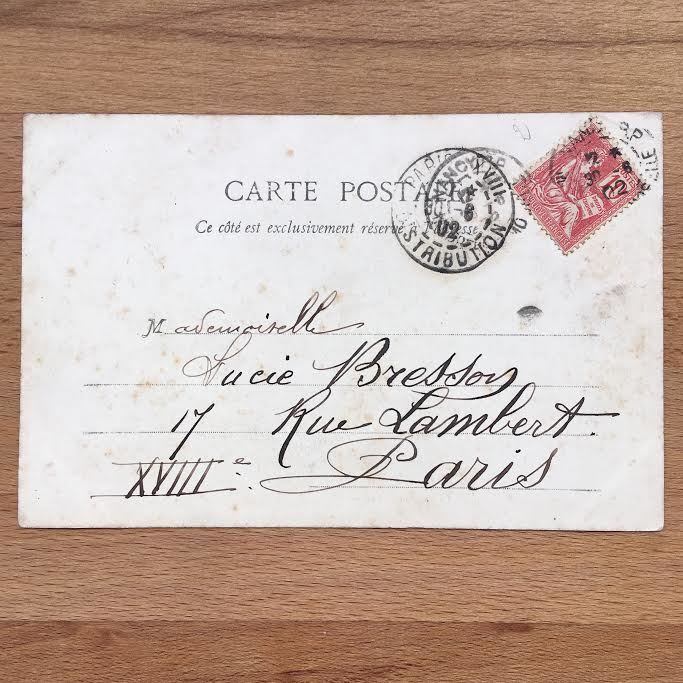 CARTE POSTALE
Ce côté est exclusivement réservé à l'adresse
PARIS XVIII
DISTRIBUTION
02
Mademoiselle
Lucie Bresson
17 Rue Lambert.
XVIIIe. Paris